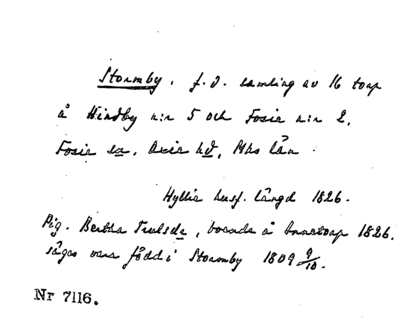 Stormby. f.d. samling av 16 torp
å Hindby n:r 5 och Fosie n:r 2,
Fosie sn, Oxie hd, Mhs län.
Hyllie husf. längd 1826.
Pig. Bertha Truls dr, boende å 1826.
säges vara född i Stormby 1809 9/10.
Nr 7116.